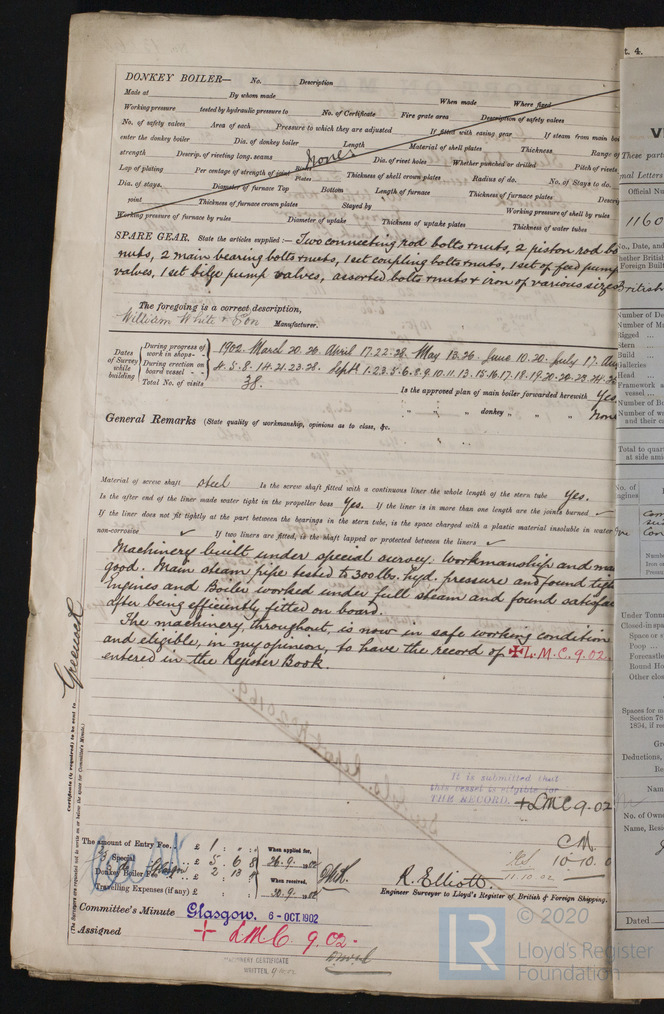 DONKEY BOILER— No. Description
Made at By whom made When made Where fixed
Working pressure tested by hydraulic pressure to No. of Certificate Fire grate area Description of safety valves
No. of safety valves Area of each Pressure to which they are adjusted If fitted with easing gear If steam from main boi
enter the donkey boiler Dia. of donkey boiler Length Material of shell plates Thickness Range of
strength Descrip. of riveting long. seams None Dia. of rivet holes Whether punched or drilled Pitch of rivets
Lap of plating Per centage of strength of joint Rivets Plates Thickness of shell crown plates Radius of do. No. of Stays to do.
Dia. of stays. Diameter of furnace Top Bottom Length of furnace Thickness of furnace plates Descri
joint Thickness of furnace crown plates Stayed by Working pressure of shell by rules
Working pressure of furnace by rules Diameter of uptake Thickness of uptake plates Thickness of water tubes
SPARE GEAR. State the articles supplied:— Two connecting rod bolts & nuts, 2 piston rod bo
nuts, 2 main bearing bolts & nuts, 1 set coupling bolts & nuts, 1 set of feed pump
valves, 1 set bilge pump valves, assorted bolts & nuts & iron of various sizes
The foregoing is a correct description,
William White & Son Manufacturer.
Dates of Survey while building
During progress of work in shops— 1902 March 20. 26. April 17. 22. 28. May 13. 26. June 10. 20. July 17. Aug
During erection on board vessel— 4. 5. 8. 14. 21. 23. 28. Sept. 1. 2. 3. 5. 6. 8. 9. 10. 11. 13. 15. 16. 17. 18. 19. 20.
Total No. of visits 38.
Is the approved plan of main boiler forwarded herewith Yes
" " " donkey " " " None
General Remarks (State quality of workmanship, opinions as to class, &c.
Material of screw shaft steel Is the screw shaft fitted with a continuous liner the whole length of the stern tube Yes.
Is the after end of the liner made water tight in the propeller boss Yes. If the liner is in more than one length are the joints burned ✓
If the liner does not fit tightly at the part between the bearings in the stern tube, is the space charged with a plastic material insoluble in water
non-corrosive ✓ If two liners are fitted, is the shaft lapped or protected between the liners ✓
Machinery built under special survey. Workmanship and ma
good. Main steam pipe tested to 300 lbs. hyd. pressure and found tigh
Engines and Boiler worked under full steam and found satisfac
after being efficiently fitted on board.
The machinery, throughout, is now in safe working condition
and eligible, in my opinion, to have the record of ✠L.M.C. 9.02.
entered in the Register Book.
Greenock
Certificate (if required) to be sent to
(The Surveyors are requested not to write on or below the space for Committee's Minute.)
It is submitted that
this vessel is eligible for
THE RECORD. +LMC 9.02
The amount of Entry Fee.. £ 1 : " : " When applied for,
Special £ 5 . 6 8 26.9.1902
Donkey Boiler Fee £ 2 . 13 When received,
Travelling Expenses (if any) £ : : 30.9.1902
R. Elliott.
Engineer Surveyor to Lloyd's Register of British & Foreign Shipping.
11.10.02
Committee's Minute Glasgow. 6-OCT.1902
Assigned + LMC 9.02.
MACHINERY CERTIFICATE
WRITTEN.
t. 4.
These part
Official Nu
1160
No., Date, and
Whether British
Foreign Buil
British
Number of De
Number of Ma
Rigged ...
Stern ...
Build ...
Galleries
Head ...
Framework a
vessel ...
Number of Bu
Number of wa
and their ca
Total to quart
at side ami
No. of
Engines
Under Tonna
Closed-in spa
Space or s
Poop ...
Forecastle
Round Ho
Other clos
Spaces for m
Section 78
1894, if re
Gro
Deductions,
Re
Nam
No. of Owne
Name, Resid
Dated
LR © 2020
Lloyd's Register
Foundation